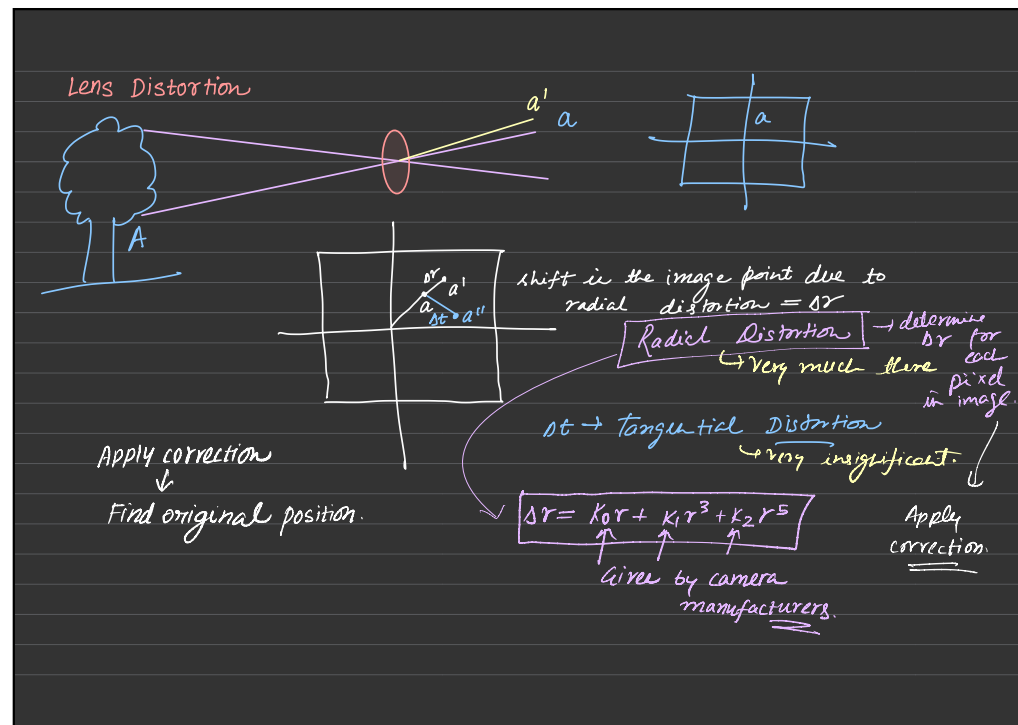 Lens Distortion
a'
a
a
A
Δr
a'
a
Δt
a''
shift in the image point due to
radial distortion = Δr
Radial Distortion
→ determine
Δr for
each
pixel
in image.
↳ very much there
Δt → Tangential Distortion
↳ very insignificant.
Apply correction
↓
Find original position.
Δr = K₀r + K₁r³ + K₂r⁵
Given by camera
manufacturers.
Apply
correction.